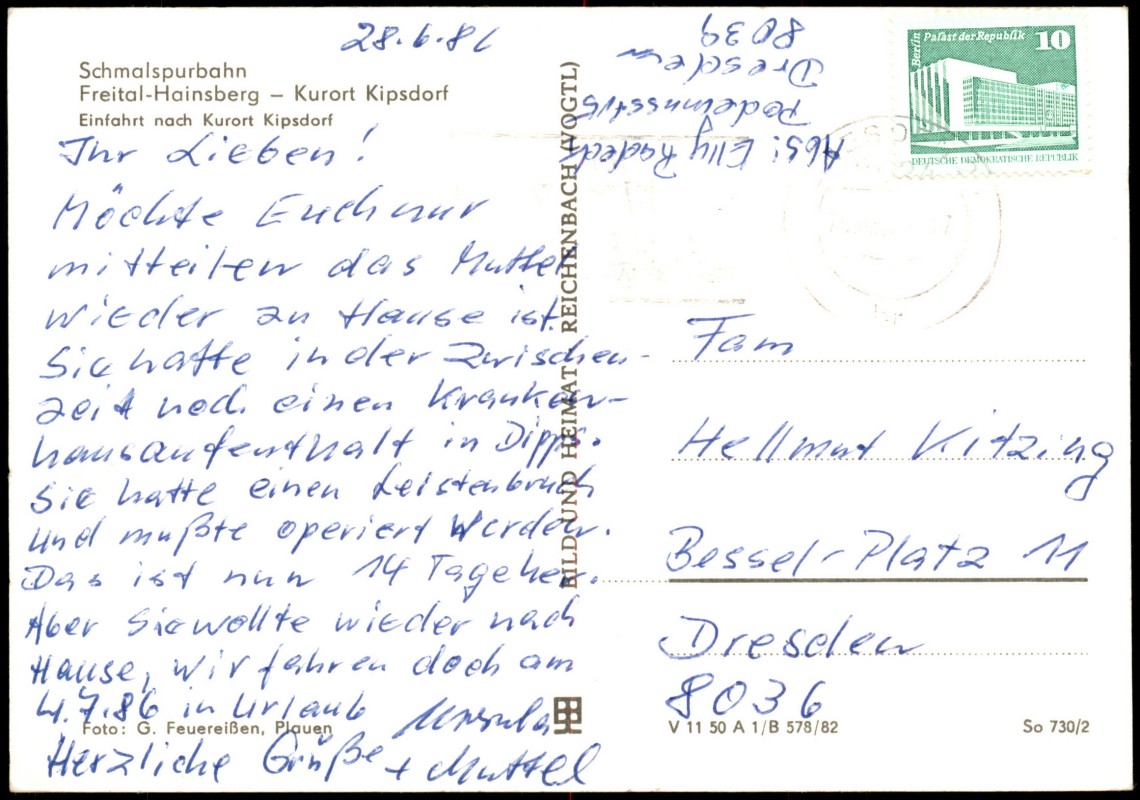 28.6.86
Schmalspurbahn
Freital-Hainsberg – Kurort Kipsdorf
Einfahrt nach Kurort Kipsdorf
Ihr Lieben!
Möchte Euch nur
mitteilen das Muttel
wieder zu Hause ist.
Sie hatte in der Zwischen-
zeit noch einen Kranken-
hausaufenthalt in Dipps.
Sie hatte einen Leistenbruch
und mußte operiert werden.
Das ist nun 14 Tage her.
Aber Sie wollte wieder nach
Hause, wir fahren doch am
4.7.86 in Urlaub
Ursula
Herzliche Grüße + Muttel
Foto: G. Feuereißen, Plauen
BILD UND HEIMAT REICHENBACH (VOGTL)
Abs: Elly
Dresden
8039
Berlin Palast der Republik 10
DEUTSCHE DEMOKRATISCHE REPUBLIK
Fam
Hellmut Kitzing
Bessel-Platz 11
Dresden
8036
V 11 50 A 1/B 578/82
So 730/2